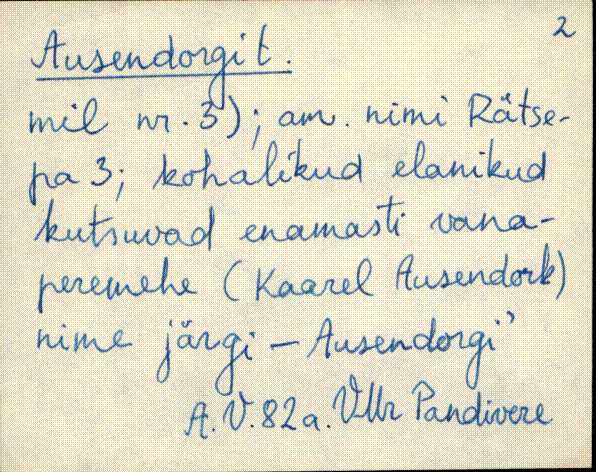 2
Ausendorgi t.
mil nr. 3); am. nimi Rätse-
pa 3; kohalikud elanikud
kutsuvad enamasti vana-
peremehe (Kaarel Ausendork)
nime järgi – Ausendorgi'
A. V. 82a. VMr Pandivere